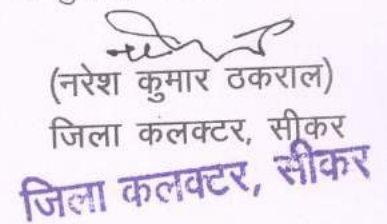 (नरेश कुमार ठकराल)
जिला कलक्टर, सीकर
जिला कलक्टर, सीकर